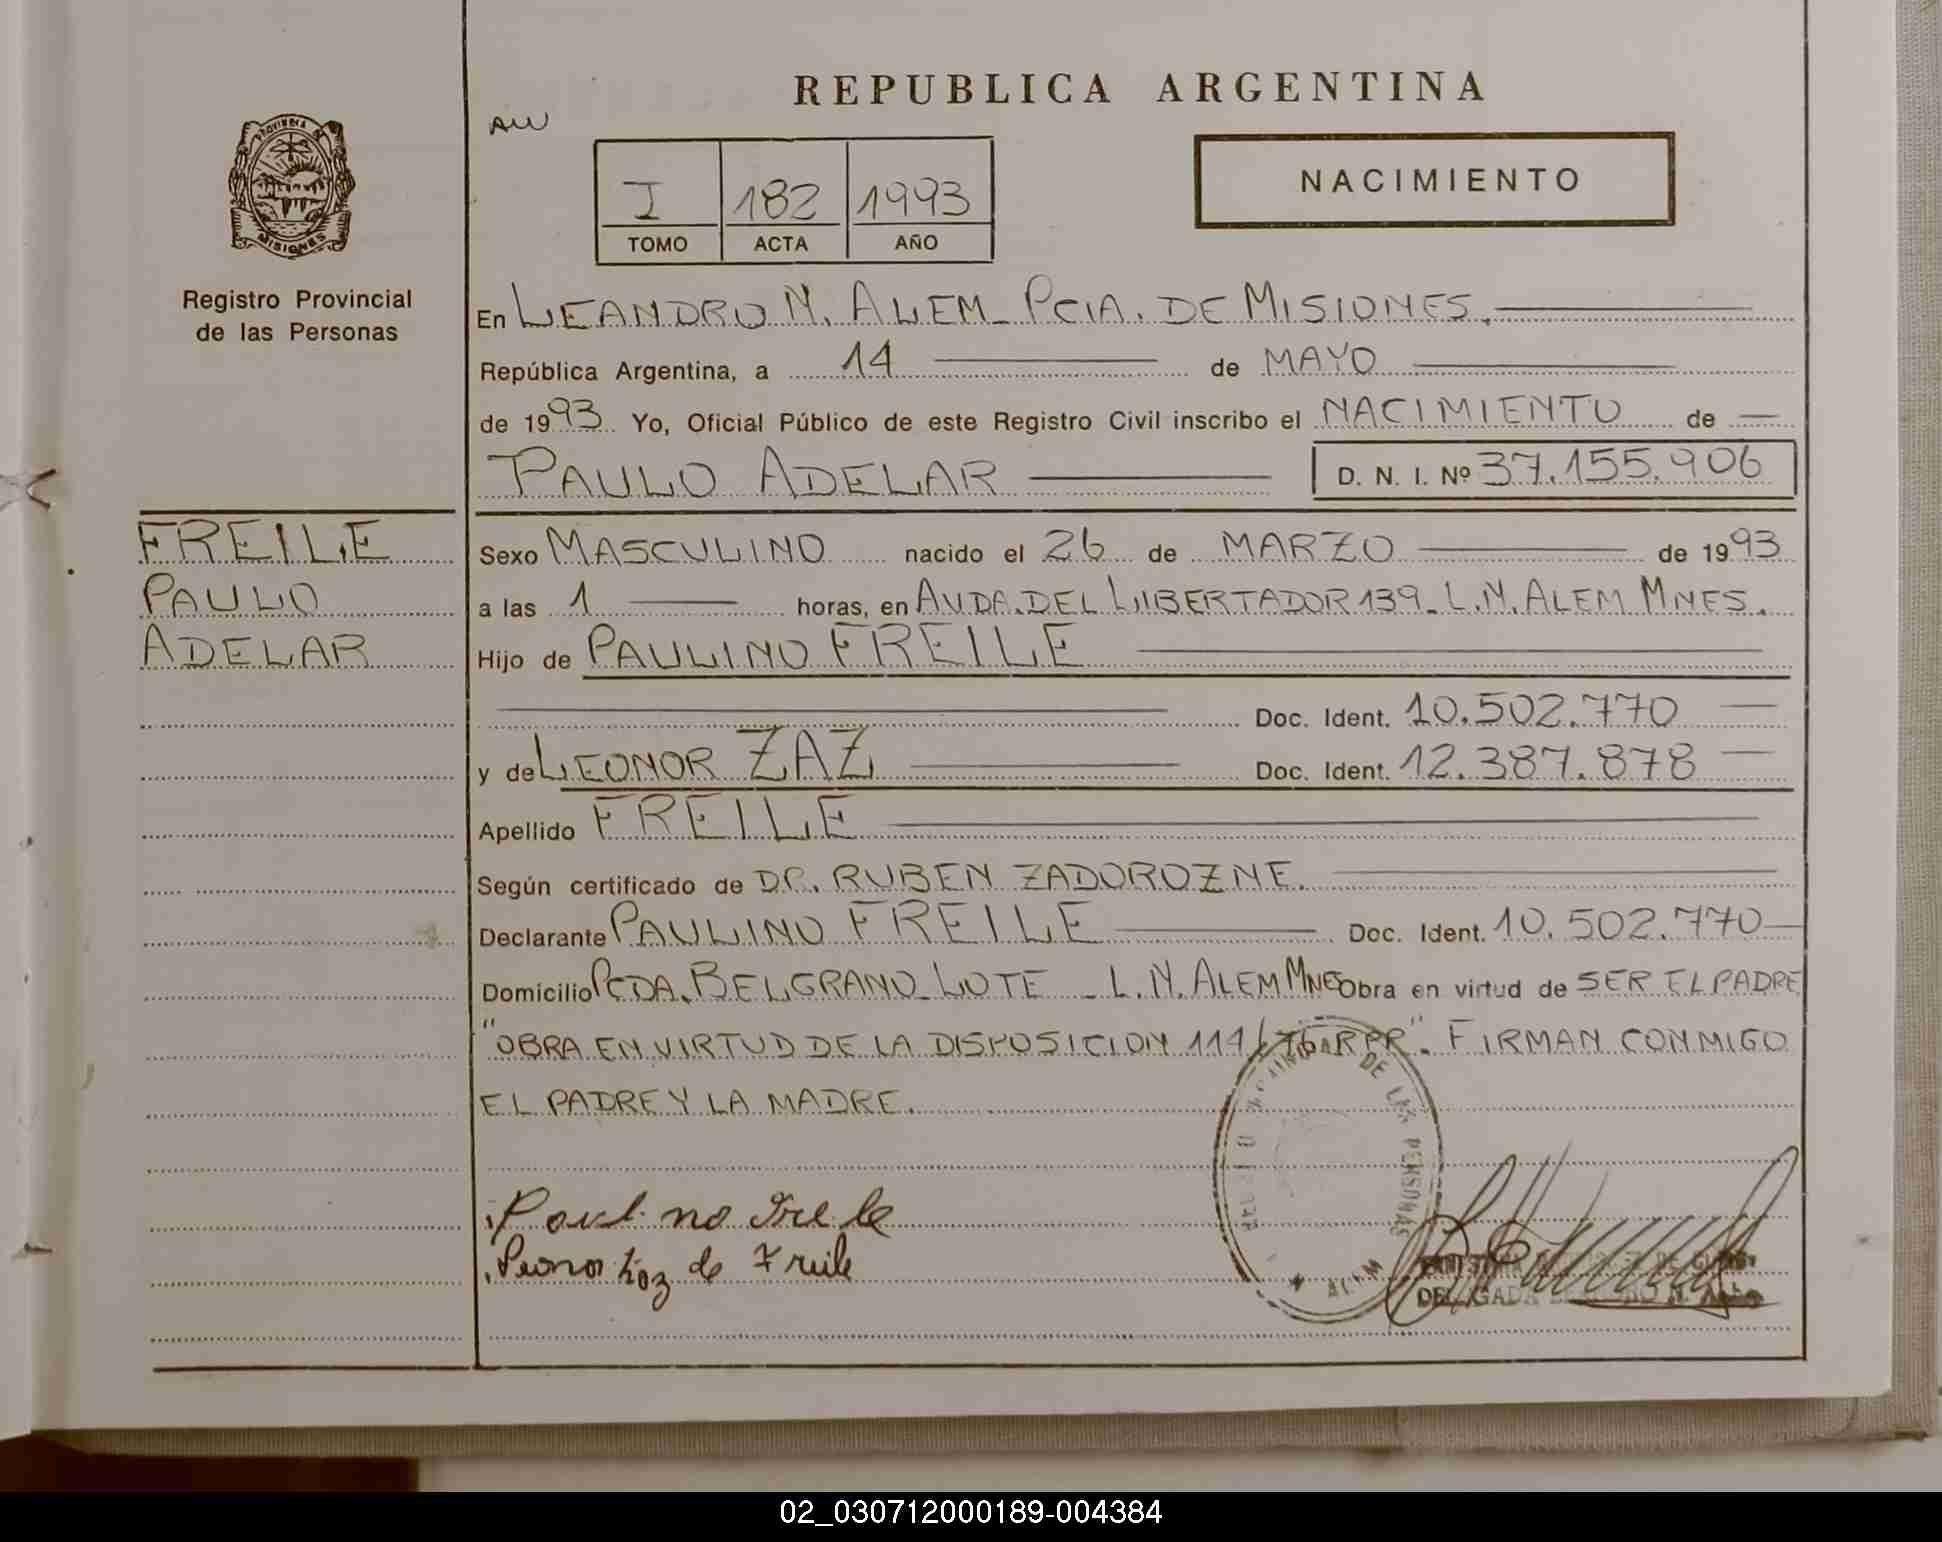 REPUBLICA ARGENTINA
AW
PROVINCIA DE
MISIONES
Registro Provincial
de las Personas
I 182 1993
TOMO ACTA AÑO
NACIMIENTO
En LEANDRO N. ALEM - PCIA. DE MISIONES.
República Argentina, a 14 de MAYO
de 1993 Yo, Oficial Público de este Registro Civil inscribo el NACIMIENTO de
PAULO ADELAR D. N. I. Nº 37.155.906
FREILE
PAULO
ADELAR
Sexo MASCULINO nacido el 26 de MARZO de 1993
a las 1 horas, en AVDA. DEL LIBERTADOR 139 - L.N. ALEM MNES.
Hijo de PAULINO FREILE
Doc. Ident. 10.502.770
y de LEONOR ZAZ Doc. Ident. 12.387.878
Apellido FREILE
Según certificado de DR. RUBEN ZADOROZNE.
Declarante PAULINO FREILE Doc. Ident. 10.502.770
Domicilio PCDA. BELGRANO - LOTE - L.N. ALEM MNES Obra en virtud de SER EL PADRE
"OBRA EN VIRTUD DE LA DISPOSICION 111/76 RPR". FIRMAN CONMIGO
EL PADRE Y LA MADRE.
DE LAS PERSONAS
ALEM
Paulino Freile
Leonor Zaz de Freile
DELEGADA
02_030712000189-004384